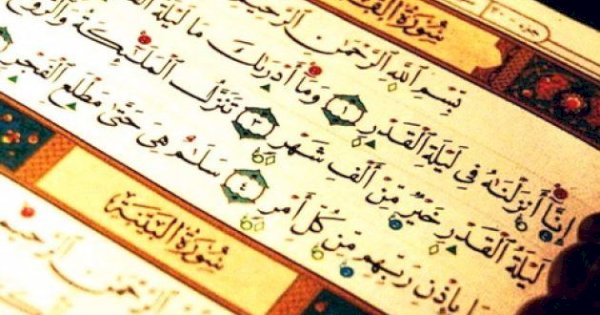 سُورَةُ القَدْرِ
بِسْمِ ٱللَّهِ ٱلرَّحْمَٰنِ ٱلرَّحِيمِ
إِنَّآ أَنزَلْنَٰهُ فِى لَيْلَةِ ٱلْقَدْرِ ١ وَمَآ أَدْرَىٰكَ مَا لَيْلَةُ
لَيْلَةُ ٱلْقَدْرِ خَيْرٌ مِّنْ أَلْفِ شَهْرٍ ٣ تَنَزَّلُ ٱلْمَلَٰٓئِكَةُ وَٱلرُّوحُ
بِإِذْنِ رَبِّهِم مِّن كُلِّ أَمْرٍ ٤ سَلَٰمٌ هِىَ حَتَّىٰ مَطْلَعِ ٱلْفَجْرِ
سُورَةُ البَيِّنَةِ
ٱلرَّحْمَٰنِ ٱلرَّحِيمِ